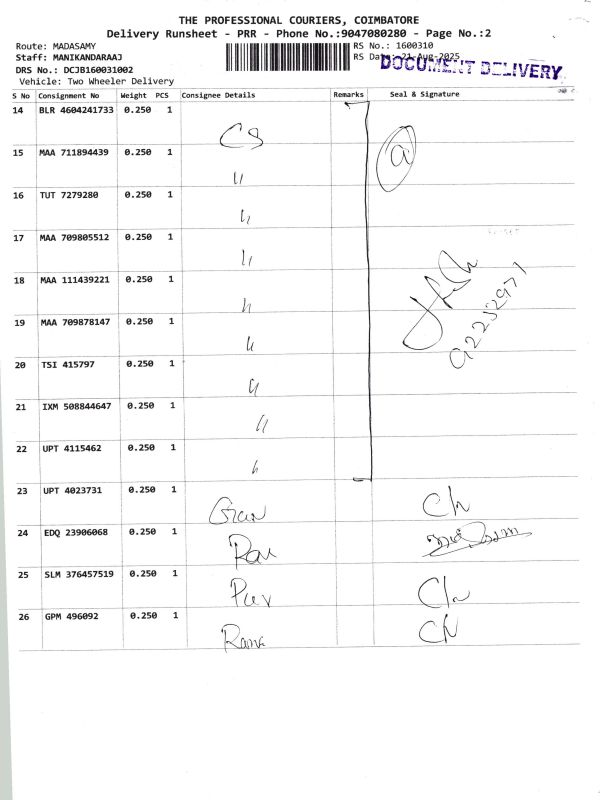 THE PROFESSIONAL COURIERS, COIMBATORE
Delivery Runsheet - PRR - Phone No.:9047080280 - Page No.:2
Route: MADASAMY RS No.: 1600310
Staff: MANIKANDARAAJ RS Date: 21-Aug-2025
DOCUMENT DELIVERY
DRS No.: DCJB160031002
Vehicle: Two Wheeler Delivery
S No Consignment No Weight PCS Consignee Details Remarks Seal & Signature
14 BLR 4604241733 0.250 1 CS
15 MAA 711894439 0.250 1 〃 a
16 TUT 7279280 0.250 1 〃
17 MAA 709805512 0.250 1 〃
18 MAA 111439221 0.250 1 〃
19 MAA 709878147 0.250 1 〃
20 TSI 415797 0.250 1 〃
21 IXM 508844647 0.250 1 〃
22 UPT 4115462 0.250 1 〃
23 UPT 4023731 0.250 1
24 EDQ 23906068 0.250 1
25 SLM 376457519 0.250 1
26 GPM 496092 0.250 1